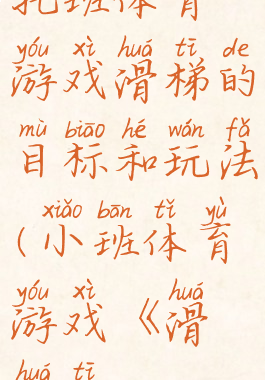 托班体育
yóu xì huá tī de
游戏滑梯的
mù biāo hé wán fǎ
目标和玩法
xiǎo bān tǐ yù
(小班体育
yóu xì huá
游戏《滑
huá tī